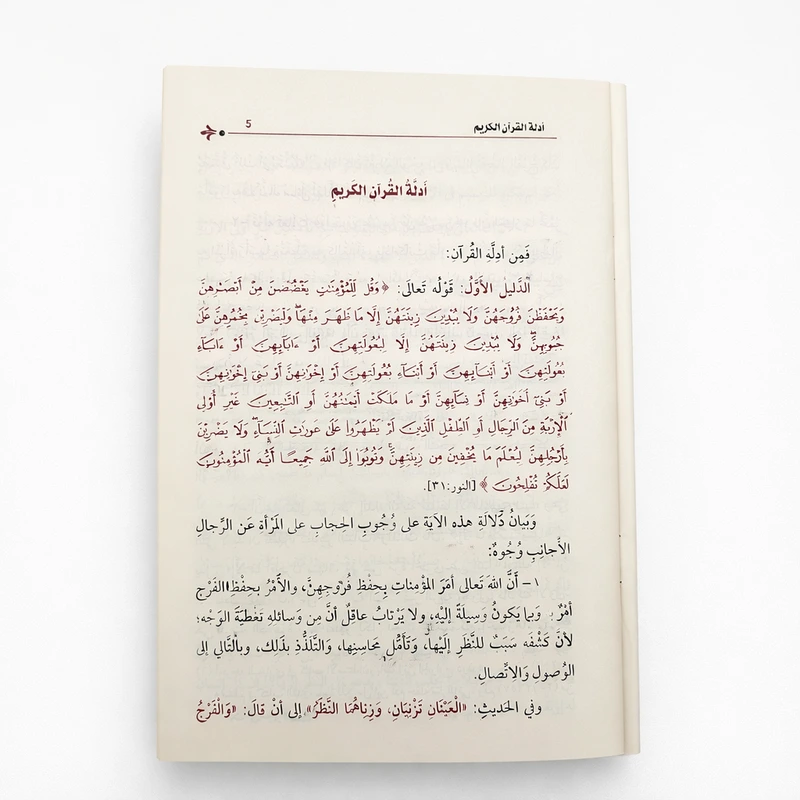 أدلة القرآن الكريم 5
أَدلَّةُ القُرآنِ الكَريمِ
فَمِن أدِلَّهِ القُرآنِ:
الدَّليلُ الأَوَّلُ: قَولُه تَعالَى: ﴿ وَقُل لِّلْمُؤْمِنَٰتِ يَغْضُضْنَ مِنْ أَبْصَٰرِهِنَّ
وَيَحْفَظْنَ فُرُوجَهُنَّ وَلَا يُبْدِينَ زِينَتَهُنَّ إِلَّا مَا ظَهَرَ مِنْهَا ۖ وَلْيَضْرِبْنَ بِخُمُرِهِنَّ عَلَىٰ
جُيُوبِهِنَّ ۖ وَلَا يُبْدِينَ زِينَتَهُنَّ إِلَّا لِبُعُولَتِهِنَّ أَوْ ءَابَآئِهِنَّ أَوْ ءَابَآءِ
بُعُولَتِهِنَّ أَوْ أَبْنَآئِهِنَّ أَوْ أَبْنَآءِ بُعُولَتِهِنَّ أَوْ إِخْوَٰنِهِنَّ أَوْ بَنِىٓ إِخْوَٰنِهِنَّ
أَوْ بَنِىٓ أَخَوَٰتِهِنَّ أَوْ نِسَآئِهِنَّ أَوْ مَا مَلَكَتْ أَيْمَٰنُهُنَّ أَوِ ٱلتَّٰبِعِينَ غَيْرِ أُو۟لِى
ٱلْإِرْبَةِ مِنَ ٱلرِّجَالِ أَوِ ٱلطِّفْلِ ٱلَّذِينَ لَمْ يَظْهَرُوا۟ عَلَىٰ عَوْرَٰتِ ٱلنِّسَآءِ ۖ وَلَا يَضْرِبْنَ
بِأَرْجُلِهِنَّ لِيُعْلَمَ مَا يُخْفِينَ مِن زِينَتِهِنَّ ۚ وَتُوبُوٓا۟ إِلَى ٱللَّهِ جَمِيعًا أَيُّهَ ٱلْمُؤْمِنُونَ
لَعَلَّكُمْ تُفْلِحُونَ ﴾ [النور:٣١].
وَبَيانُ دِلَالَةِ هذِه الآيَةِ على وُجُوبِ الحِجابِ على المَرْأةِ عَن الرِّجالِ
الأَجانِبِ وُجُوهٌ:
١ – أَنَّ اللهَ تَعالى أمَرَ المؤْمِناتِ بِحِفْظِ فُرُوجِهِنَّ، والأَمْرُ بحِفْظِ الفَرْجِ
أمْرٌ بِهِ وَبِما يَكونُ وَسِيلَةً إِلَيْهِ، ولا يَرْتابُ عاقِلٌ أنَّ مِن وَسائِلِهِ تَغْطِيَةَ الوَجْهِ؛
لأنَّ كَشْفَه سَبَبٌ للنَّظَرِ إِلَيْها، وَتَأَمُّلِ مَحاسِنِها، والتَّلَذُّذِ بذَلِك، وبالتَّالي إلى
الوُصولِ وَالِاتِّصالِ.
وفي الحَديثِ: «الْعَيْنَانِ تَزْنِيَانِ، وَزِنَاهُمَا النَّظَرُ» إلى أنْ قالَ: «وَالْفَرْجُ